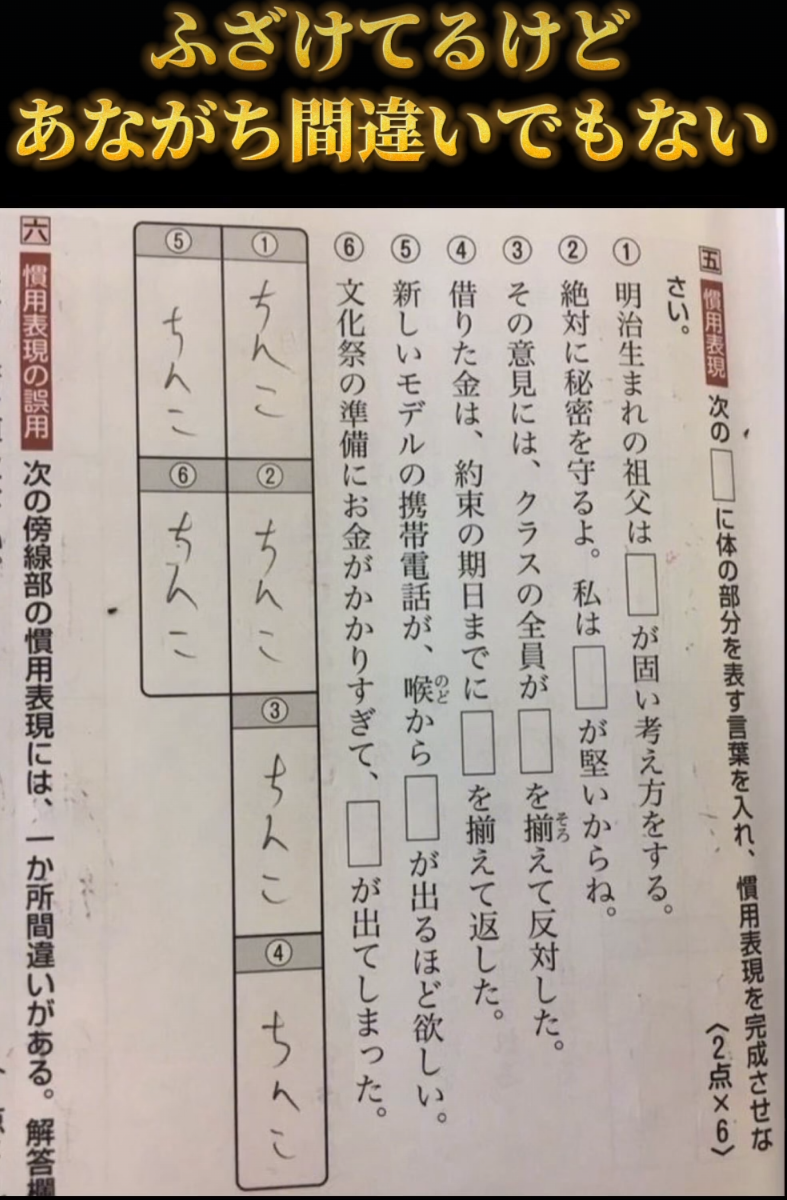 ふざけてるけど
あながち間違いでもない
五 慣用表現 次の□に体の部分を表す言葉を入れ、慣用表現を完成させな
さい。
〈2点×6〉
① 明治生まれの祖父は□が固い考え方をする。
② 絶対に秘密を守るよ。私は□が堅いからね。
③ その意見には、クラスの全員が□を揃えて反対した。
そろ
④ 借りた金は、約束の期日までに□を揃えて返した。
⑤ 新しいモデルの携帯電話が、喉から□が出るほど欲しい。
のど
⑥ 文化祭の準備にお金がかかりすぎて、□が出てしまった。
① ちんこ
② ちんこ
③ ちんこ
④ ちんこ
⑤ ちんこ
⑥ ちんこ
六 慣用表現の誤用 次の傍線部の慣用表現には、一か所間違いがある。解答欄